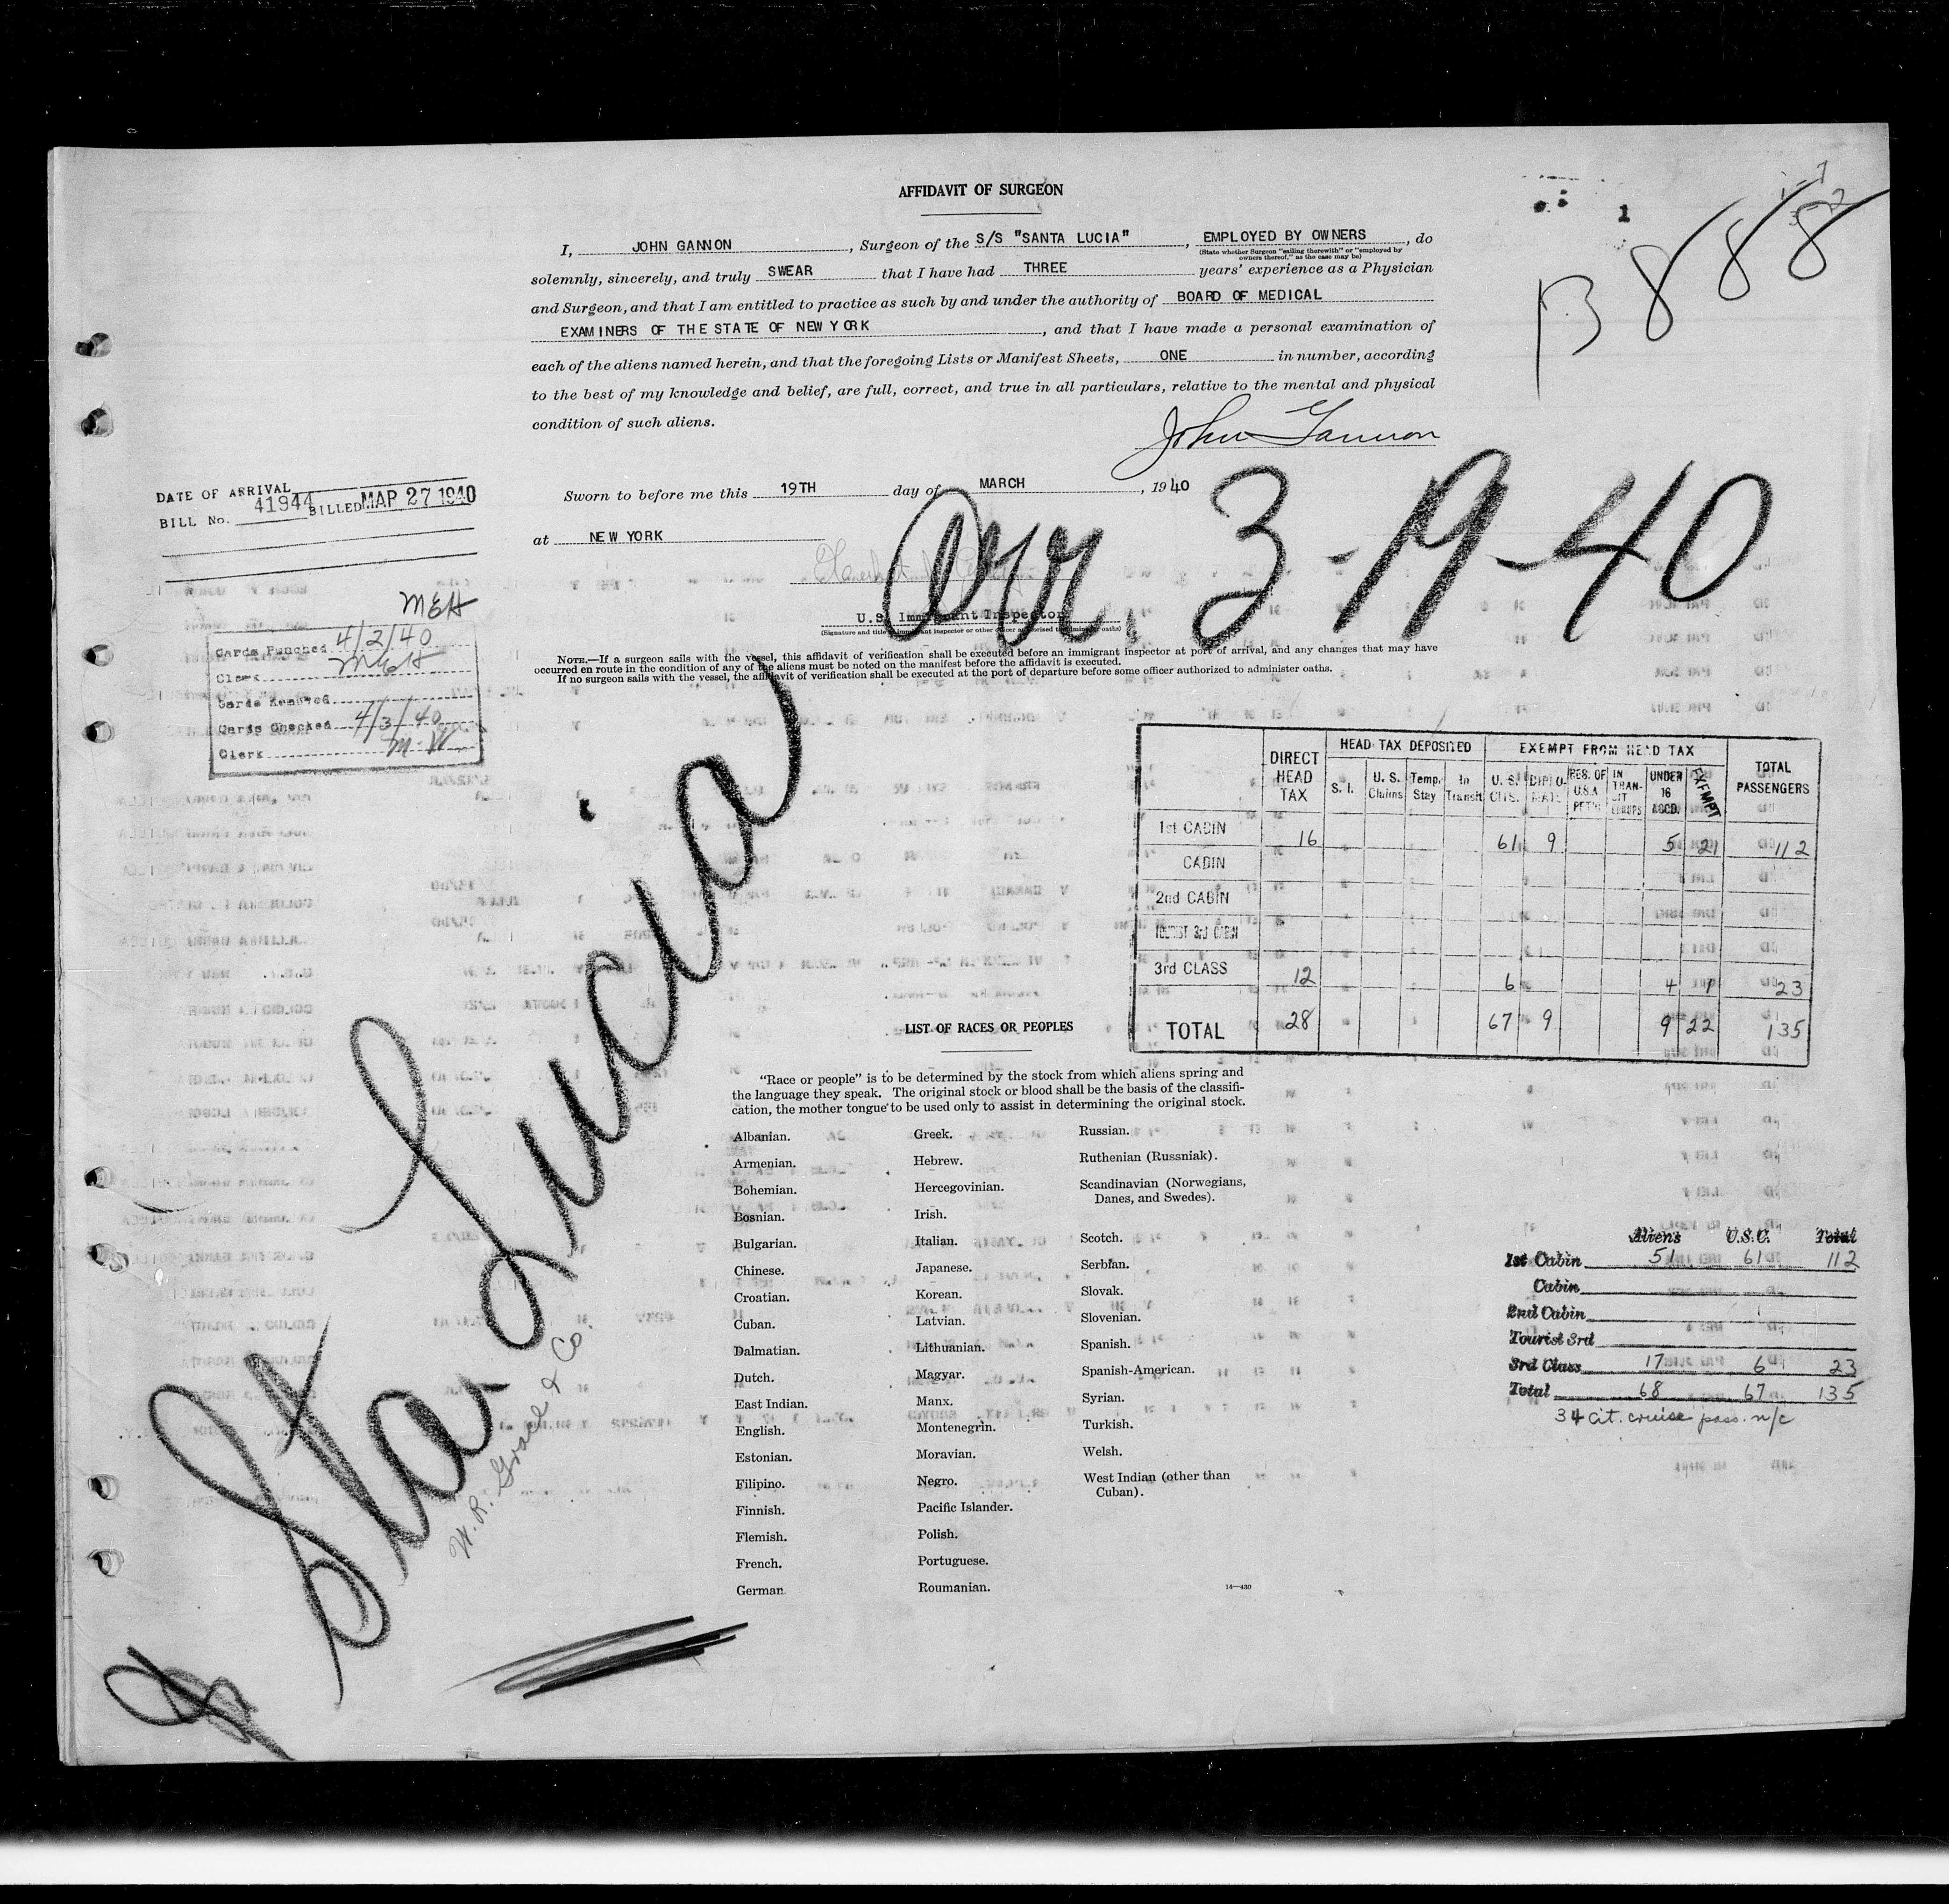 AFFIDAVIT OF SURGEON
1
B 888
I, JOHN GANNON, Surgeon of the S/S "SANTA LUCIA", EMPLOYED BY OWNERS, do
(State whether Surgeon "sailing therewith" or "employed by
owners thereof," as the case may be)
solemnly, sincerely, and truly SWEAR that I have had THREE years' experience as a Physician
and Surgeon, and that I am entitled to practice as such by and under the authority of BOARD OF MEDICAL
EXAMINERS OF THE STATE OF NEW YORK, and that I have made a personal examination of
each of the aliens named herein, and that the foregoing Lists or Manifest Sheets, ONE in number, according
to the best of my knowledge and belief, are full, correct, and true in all particulars, relative to the mental and physical
condition of such aliens.
John Gannon
Sworn to before me this 19TH day of MARCH, 1940
at NEW YORK
Arr. 3-19-40
U.S. Immigrant Inspector
(Signature and title of immigrant inspector or other officer authorized to administer oaths)
NOTE.—If a surgeon sails with the vessel, this affidavit of verification shall be executed before an immigrant inspector at port of arrival, and any changes that may have
occurred en route in the condition of any of the aliens must be noted on the manifest before the affidavit is executed.
If no surgeon sails with the vessel, the affidavit of verification shall be executed at the port of departure before some officer authorized to administer oaths.
DATE OF ARRIVAL
BILL No. 41944 BILLED MAR 27 1940
MEH
Cards Punched 4/2/40
Clerk MEH
Cards Removed
Cards Checked 4/3/40
Clerk M.W.
Sta Lucia
W. R. Grace & Co.
DIRECT HEAD TAX
HEAD TAX DEPOSITED
EXEMPT FROM HEAD TAX
TOTAL PASSENGERS
S. I. U. S. Claims Temp. Stay In Transit U. S. CITS. DIPLOMATS RES. OF U.S.A. RET'G IN TRANSIT GROUPS UNDER 16 ACCD. EXEMPT
1st CABIN 16 61 9 5 21 112
CABIN
2nd CABIN
TOURIST 3rd CABIN
3rd CLASS 12 6 4 1 23
TOTAL 28 67 9 9 22 135
LIST OF RACES OR PEOPLES
"Race or people" is to be determined by the stock from which aliens spring and
the language they speak. The original stock or blood shall be the basis of the classifi-
cation, the mother tongue to be used only to assist in determining the original stock.
Albanian.
Armenian.
Bohemian.
Bosnian.
Bulgarian.
Chinese.
Croatian.
Cuban.
Dalmatian.
Dutch.
East Indian.
English.
Estonian.
Filipino.
Finnish.
Flemish.
French.
German
Greek.
Hebrew.
Hercegovinian.
Irish.
Italian.
Japanese.
Korean.
Latvian.
Lithuanian.
Magyar.
Manx.
Montenegrin.
Moravian.
Negro.
Pacific Islander.
Polish.
Portuguese.
Roumanian.
Russian.
Ruthenian (Russniak).
Scandinavian (Norwegians,
Danes, and Swedes).
Scotch.
Serbian.
Slovak.
Slovenian.
Spanish.
Spanish-American.
Syrian.
Turkish.
Welsh.
West Indian (other than
Cuban).
14—430
Aliens U.S.C. Total
1st Cabin 51 61 112
Cabin
2nd Cabin
Tourist 3rd
3rd Class 17 6 23
Total 68 67 135
34 cit. cruise pass. n/c